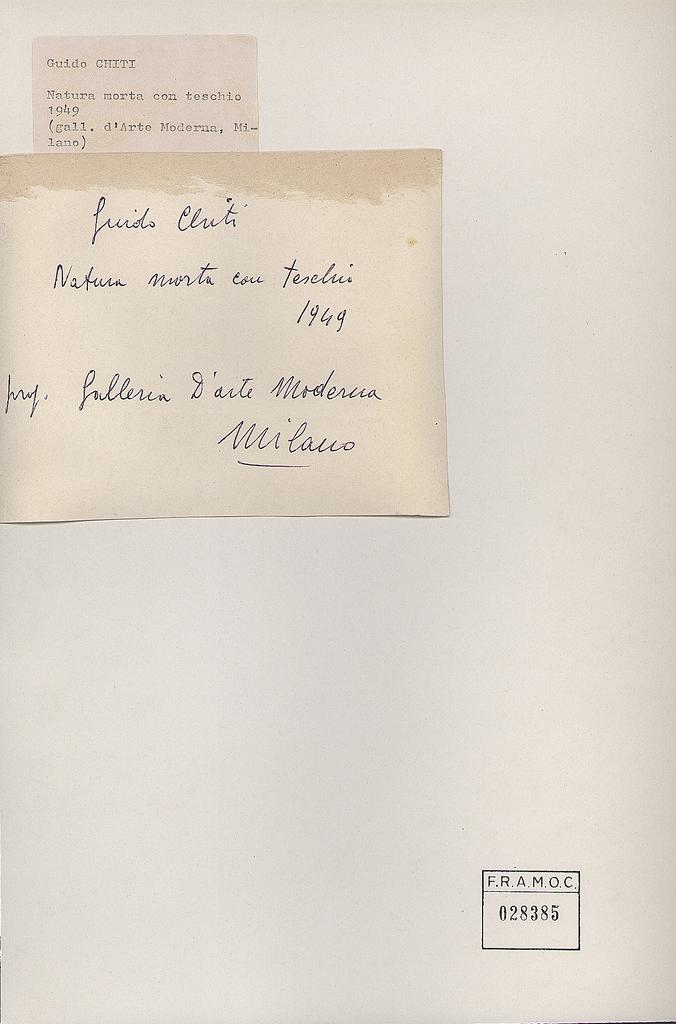 Guido CHITI
Natura morta con teschio
1949
(gall. d'Arte Moderna, Mi-
lano)
Guido Chiti
Natura morta con teschio
1949
prop. Galleria D'arte Moderna
Milano
F.R.A.M.O.C.
028385